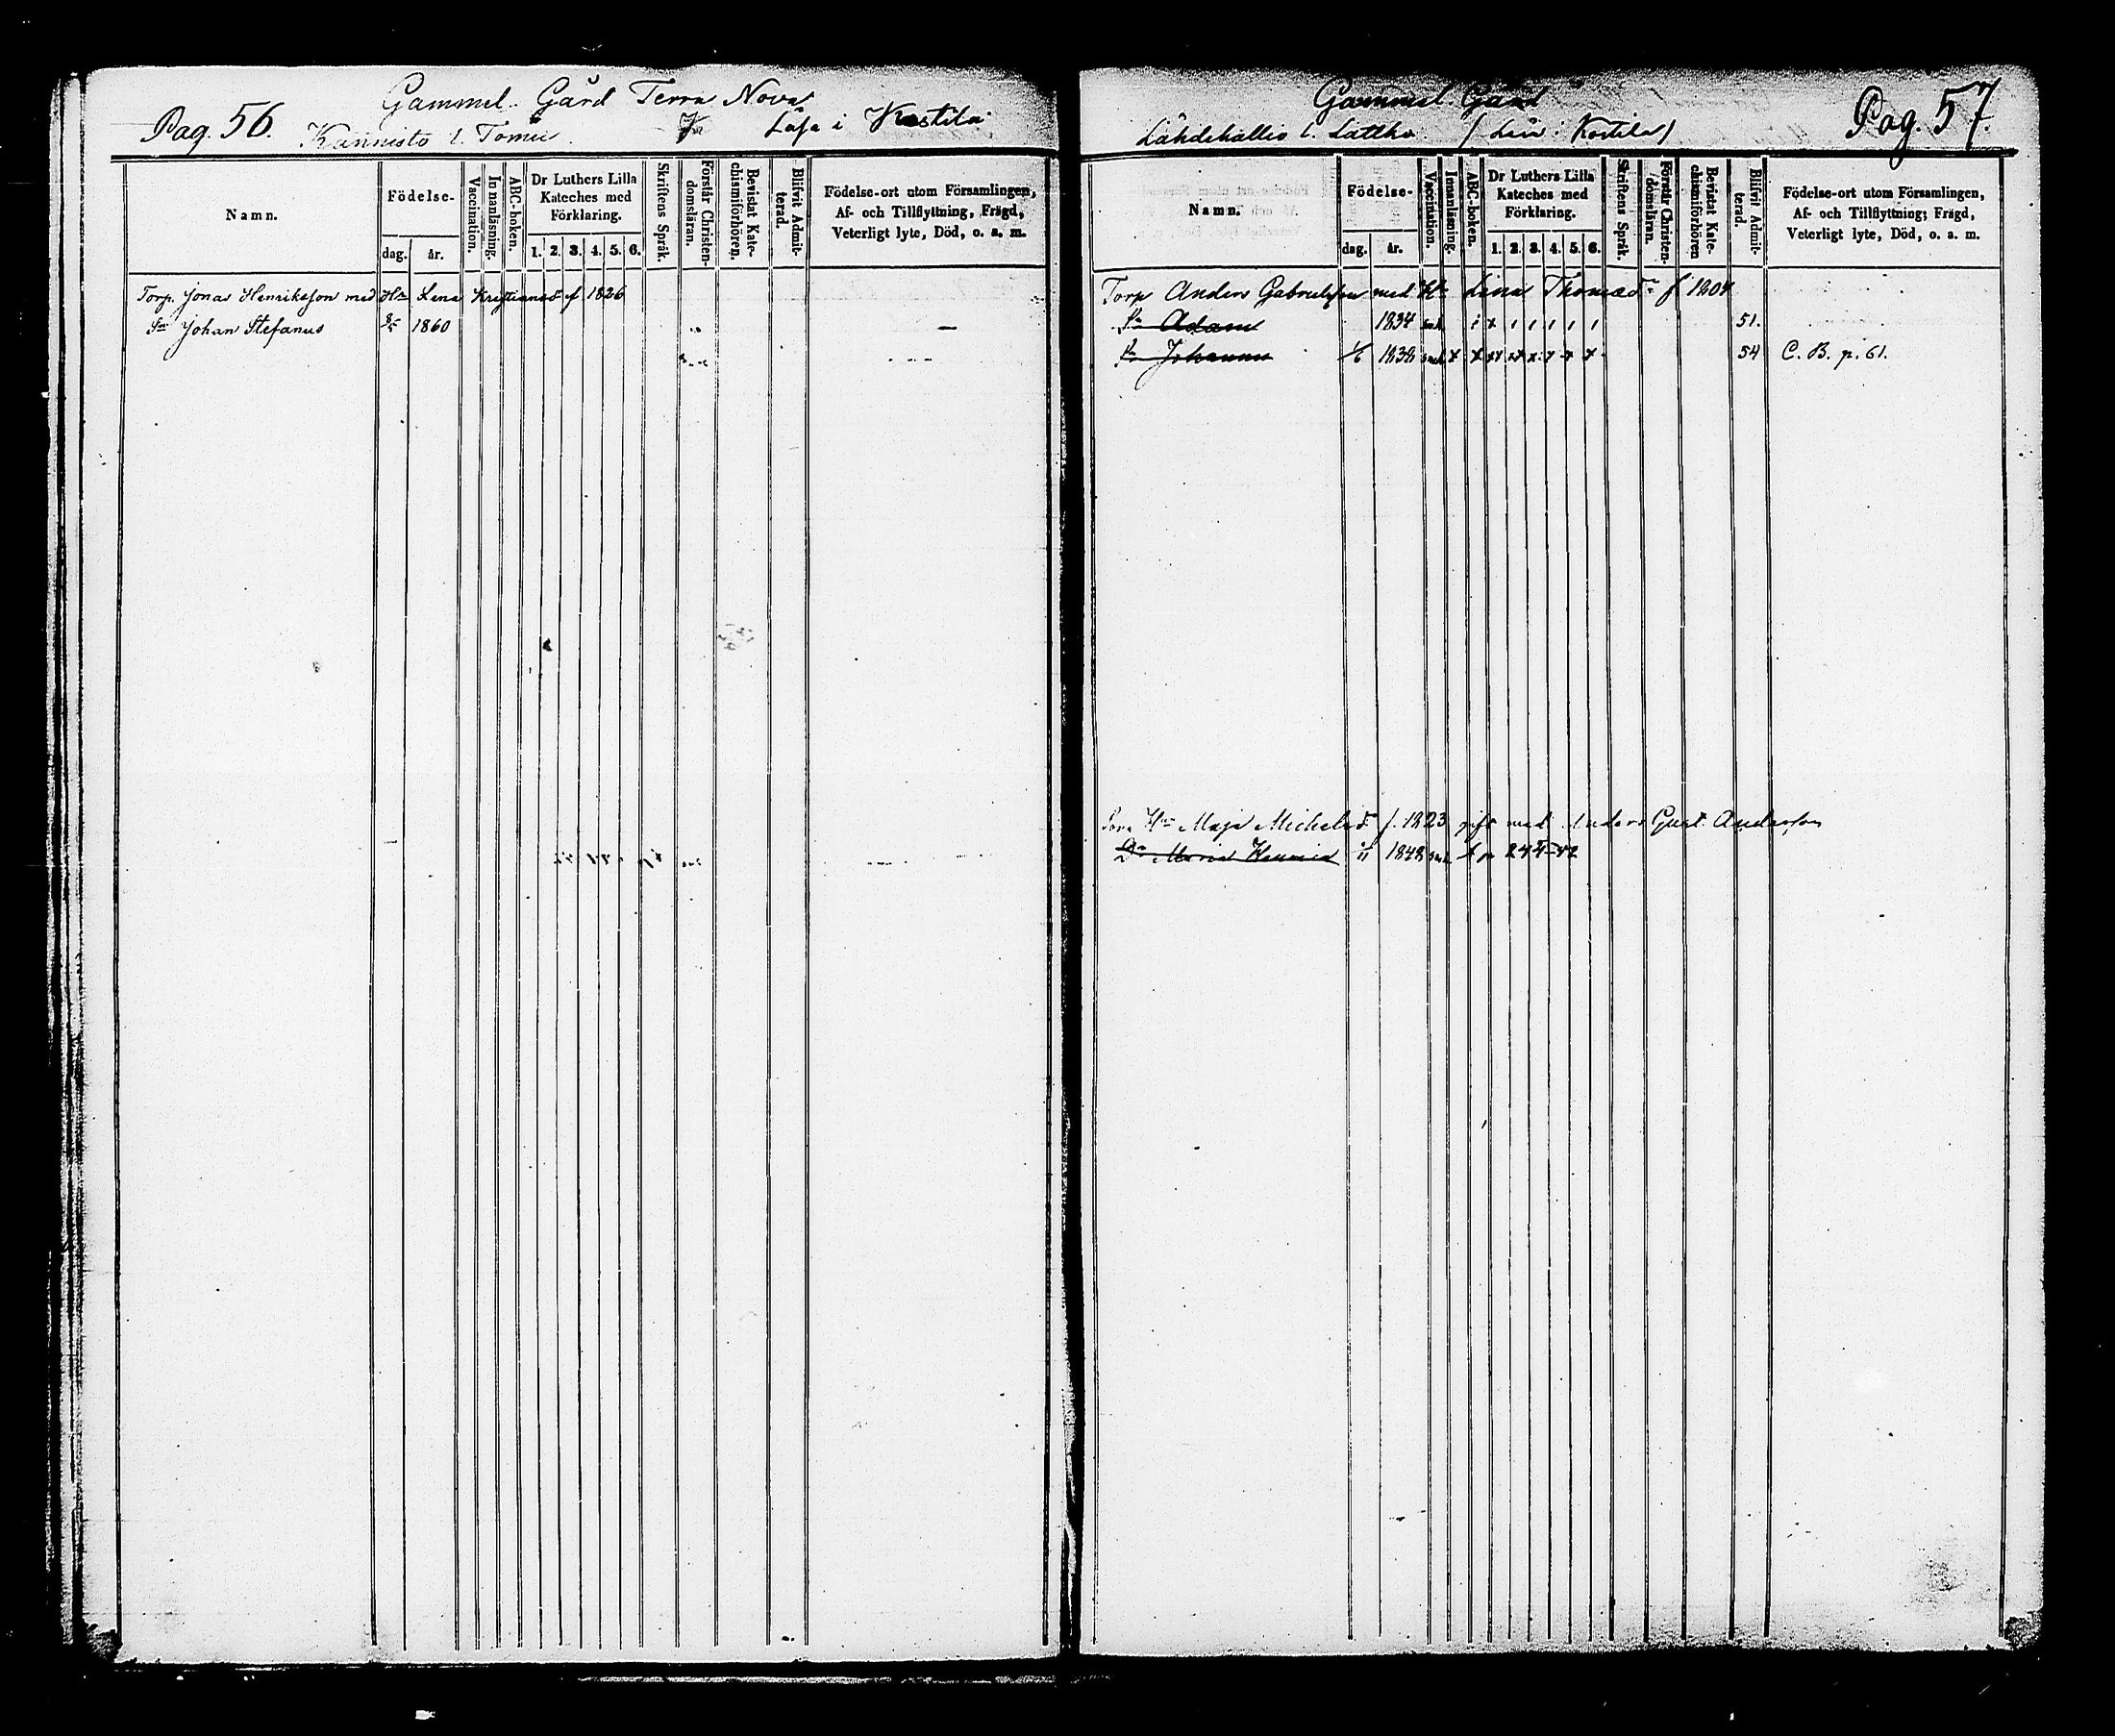 Pag. 56. Gammel. Gård Terra Nova
Kannisto l. Tomu Läsa i Kostila
Namn.
Födelse-
dag.
år.
Vaccination.
Innanläsning.
ABC-boken.
Dr Luthers Lilla
Kateches med
Förklaring.
1. 2. 3. 4. 5. 6.
Skriftens Språk.
Förstår Christen-
domsläran.
Bevistat Kate-
chismiförhören.
Blifvit Admit-
terad.
Födelse-ort utom Församlingen,
Af- och Tillflyttning, Frägd,
Veterligt lyte, Död, o. a. m.
Torp. Jonas Henriksson med Hu Lena Kristiansd f 1826
Sn Johan Stefanus 1860
Gammel. Gård Pag. 57.
Lähdekallio l. Lattko (Läs i Kostila)
Namn.
Födelse-
dag.
år.
Vaccination.
Innanläsning.
ABC-boken.
Dr Luthers Lilla
Kateches med
Förklaring.
1. 2. 3. 4. 5. 6.
Skriftens Språk.
Förstår Christen-
domsläran.
Bevistat Kate-
chismiförhören
Blifvit Admit-
terad.
Födelse-ort utom Församlingen,
Af- och Tillflyttning; Frägd,
Veterligt lyte, Död, o. a. m.
Torp Anders Gabrielsson med Hu Lena Thomæd f 1804
Sn Adam 1834 51.
Sn Johannes 1/6 1838 x x x x x x x x 54 C. B. p. 61.
Hu Maja Michelsd f. 1823 gift med Anders Gust. Andersson
Dr Maria 1848